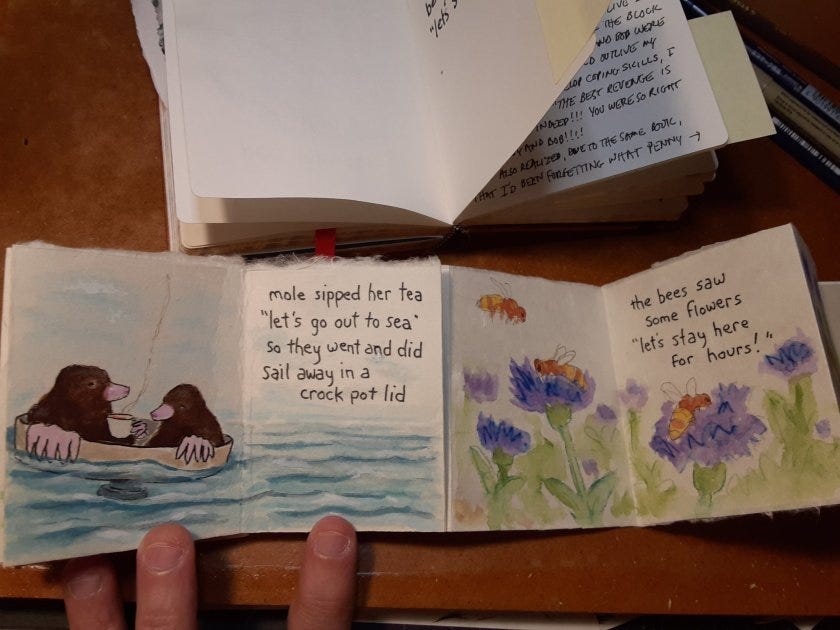 "let's
LIVE
THE BLOCK
AND BOB WERE
OUTLIVE MY
COPING SKILLS, I
"THE BEST REVENGE IS
INDEED!!! YOU WERE SO RIGHT
AND BOB!!!!
ALSO REALIZED, DUE TO THE SAME BOOK,
THAT I'D BEEN FORGETTING WHAT PENNY →
mole sipped her tea
"let's go out to sea"
so they went and did
sail away in a
crock pot lid
the bees saw
some flowers
"let's stay here
for hours!"